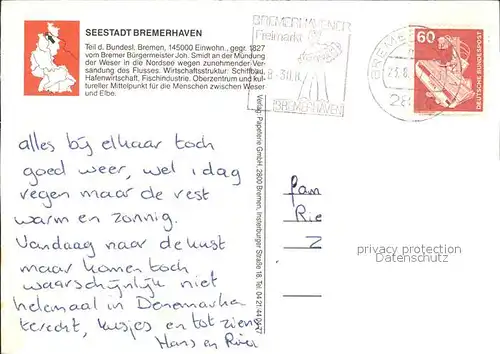 SEESTADT BREMERHAVEN
Teil d. Bundesl. Bremen, 145000 Einwohn., gegr. 1827
vom Bremer Bürgermeister Joh. Smidt an der Mündung
der Weser in die Nordsee wegen zunehmender Ver-
sandung des Flusses. Wirtschaftsstruktur: Schiffbau,
Hafenwirtschaft, Fischindustrie. Oberzentrum und kul-
tureller Mittelpunkt für die Menschen zwischen Weser
und Elbe.
BREMERHAVENER
Freimarkt
BREMERHAVEN
60
DEUTSCHE BUNDESPOST
alles bij elkaar toch
goed weer, wel 1 dag
regen maar de rest
warm en zonnig.
Vandaag naar de kust
maar komen toch
waarschijnlijk niet
helemaal in Denemarken
terecht, kusjes en tot ziens
Hans en
Verlag: Papeterie GmbH, 2800 Bremen, Insterburger Straße 16, Tel. 04 21 44
fam
Rie
Z
privacy protection
Datenschutz